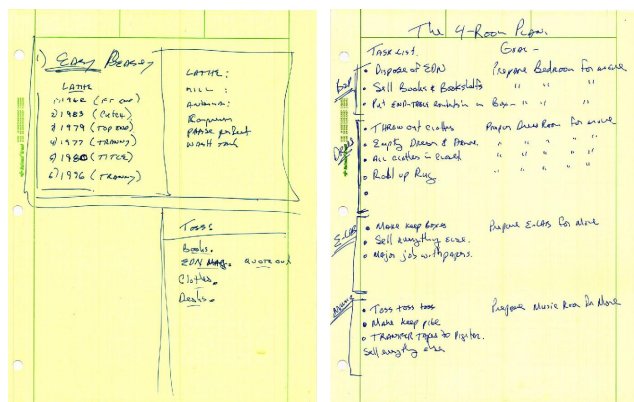 1) EASY PEASY
LATHE
1) 1962 (FT END)
2) 1983 (Clutch)
3) 1979 (TOP END)
4) 1977 (TRANNY)
5) 1980 (TITLE)
6) 1996 (TRANNY)
LATHE:
MILL:
TOSS
Books.
EDN MAG. QUOTE OUT
Clothes.
Desks.
The 4-Room Plan
TASK LIST. GOAL -
• Dispose of EDN Prepare Bedroom for move
• Sell Books & Bookshelfs " " "
• Put END-TABLE contents in Box - " " "
• THROW out clothes Prepare Dress Room for move
• Empty Dresser & " " " "
• ALL clothes in closet " " " "
• Roll up Rug " " " "
•
E-LAB
• Make keep boxes Prepare E-LAB for move
• Sell everything else.
• Major job with papers.
• Toss toss toss Prepare Music Room for Move
• Make keep pile
• TRANSFER Tapes to Digital.
Sell everything else